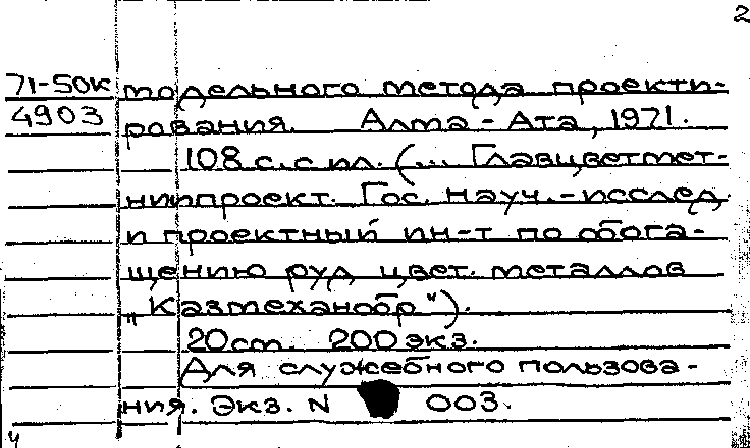 2
71-50к модельного метода проекти-
4903 рования. Алма-Ата, 1971.
108 с. с ил. (... Главцветмет-
ниипроект. Гос. науч.-исслед.
и проектный ин-т по обога-
щению руд цвет. металлов
„Казмеханобр").
20 см. 200 экз.
Для служебного пользова-
ния. Экз. N 003.
4